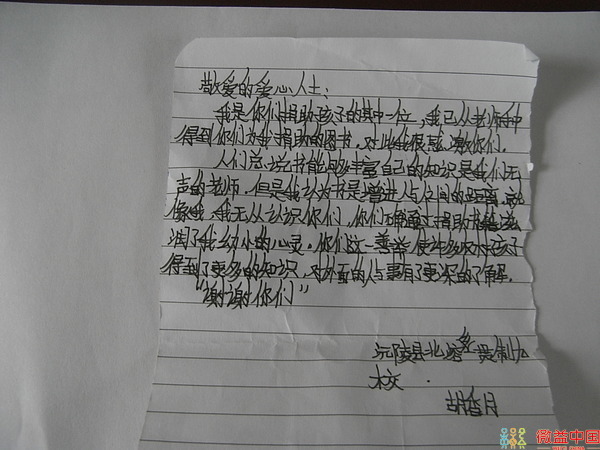 敬爱的爱心人士：
我是你们捐助孩子的其中一位，我已从老师手中
得到你们为我捐助的图书，对此我很感激你们。
人们总说书能够丰富自己的知识是我们无
声的老师，但是我认为书是增进人与人之间的距离，就
像我，我无从认识你们，你们却通过捐助书籍滋
润了我幼小的心灵。你们这一善举使许多农村孩子
得到了更多的知识，对外面的人与事有了更深的了解。
“谢谢你们”
沅陵县北溶乡
校．
胡香月
微益中国